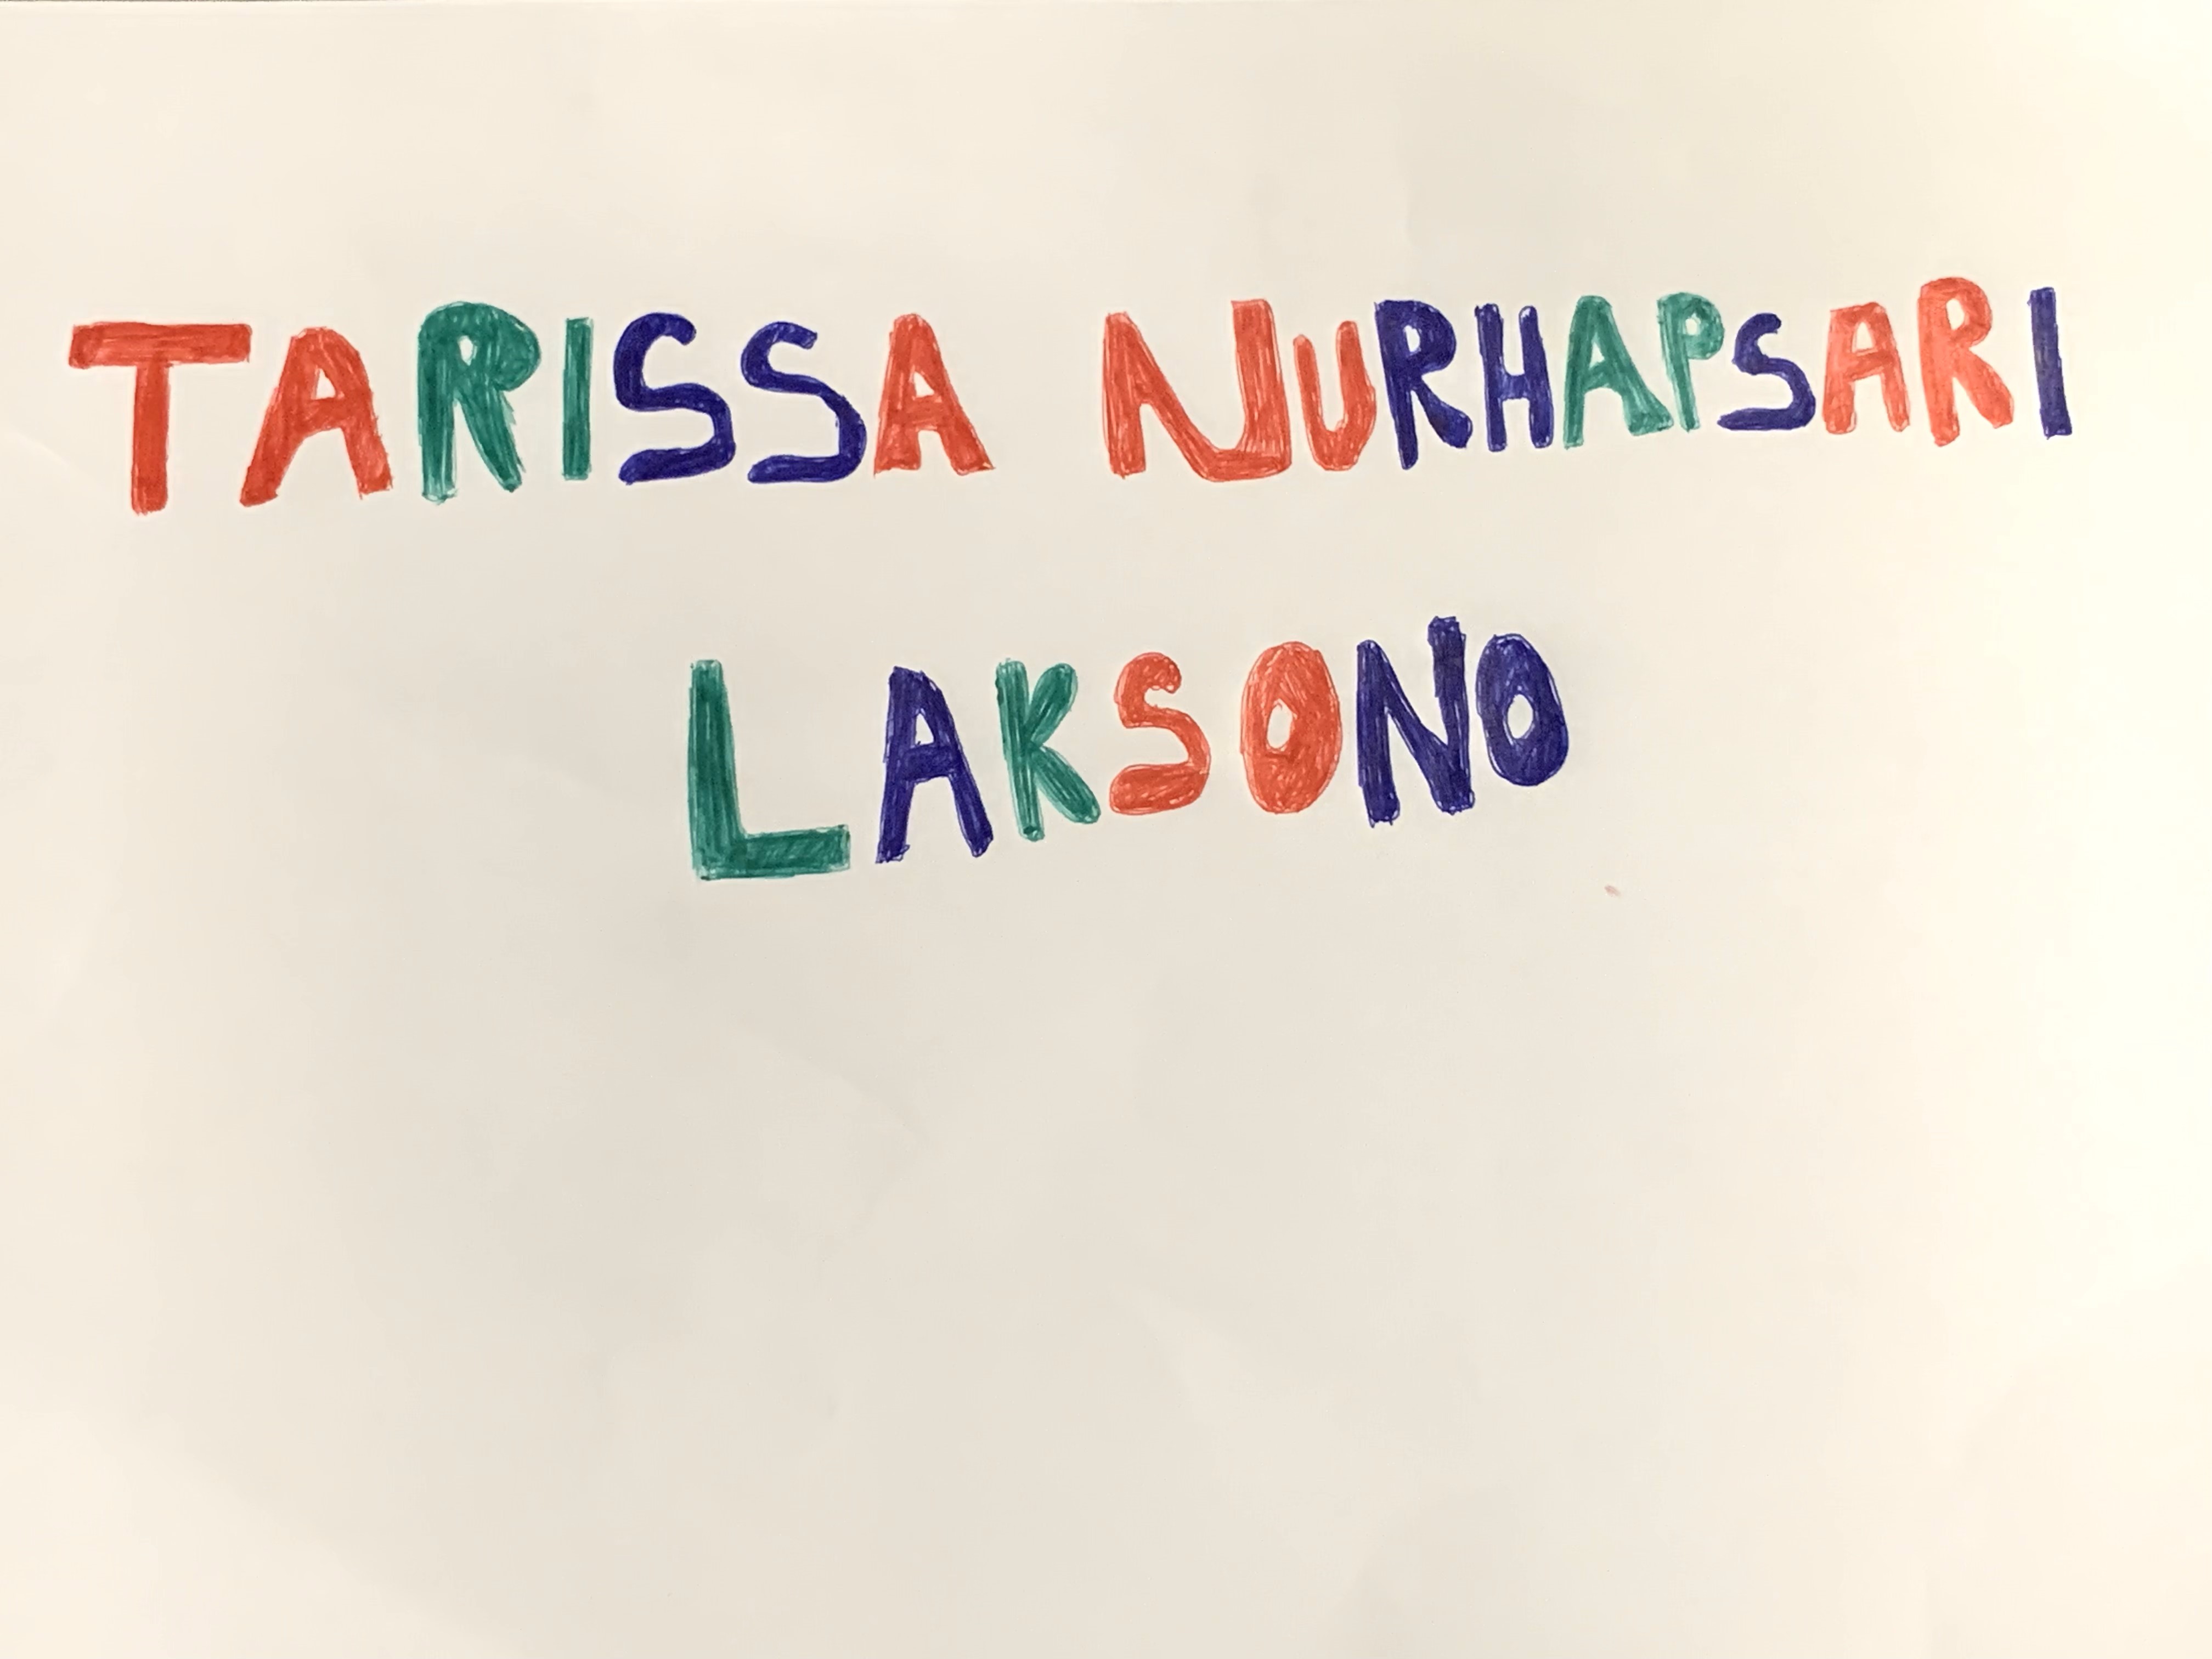 TARISSA NURHAPSARI
LAKSONO